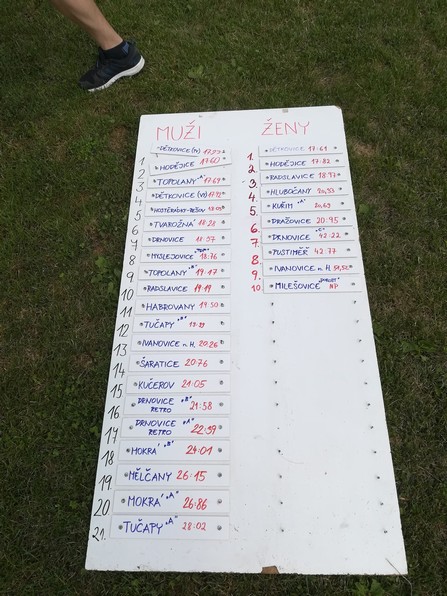 MUŽI
DĚTKOVICE
1. HODĚJICE 17:60
2. TOPOLANY "A" 17:64
3. DĚTKOVICE
4. HOSTĚRÁDKY-REŠOV
5. TVAROŽNÁ 18:28
6. DRNOVICE 18:57
7. MYSLEJOVICE 18:76
8. TOPOLANY 19:17
9. RADSLAVICE 19:19
10. HABROVANY 19:50
11. TUČAPY
12. IVANOVICE n. H. 20:26
13. ŠARATICE 20:76
14. KUČEROV 21:05
15. DRNOVICE RETRO "B" 21:58
16. DRNOVICE RETRO "A" 22:59
17. MOKRÁ "B" 24:01
18. MĚLČANY 26:15
19. MOKRÁ "A" 26:86
20. TUČAPY "A" 28:02
21.
ŽENY
DĚTKOVICE 17:61
1. HODĚJICE 17:82
2. RADSLAVICE
3. HLUBOČANY
4. KUŘIM "A"
5. DRAŽOVICE 20:95
6. DRNOVICE "C" 42:22
7. PUSTIMĚŘ 42:77
8. IVANOVICE n. H.
9. MILEŠOVICE NP
10.